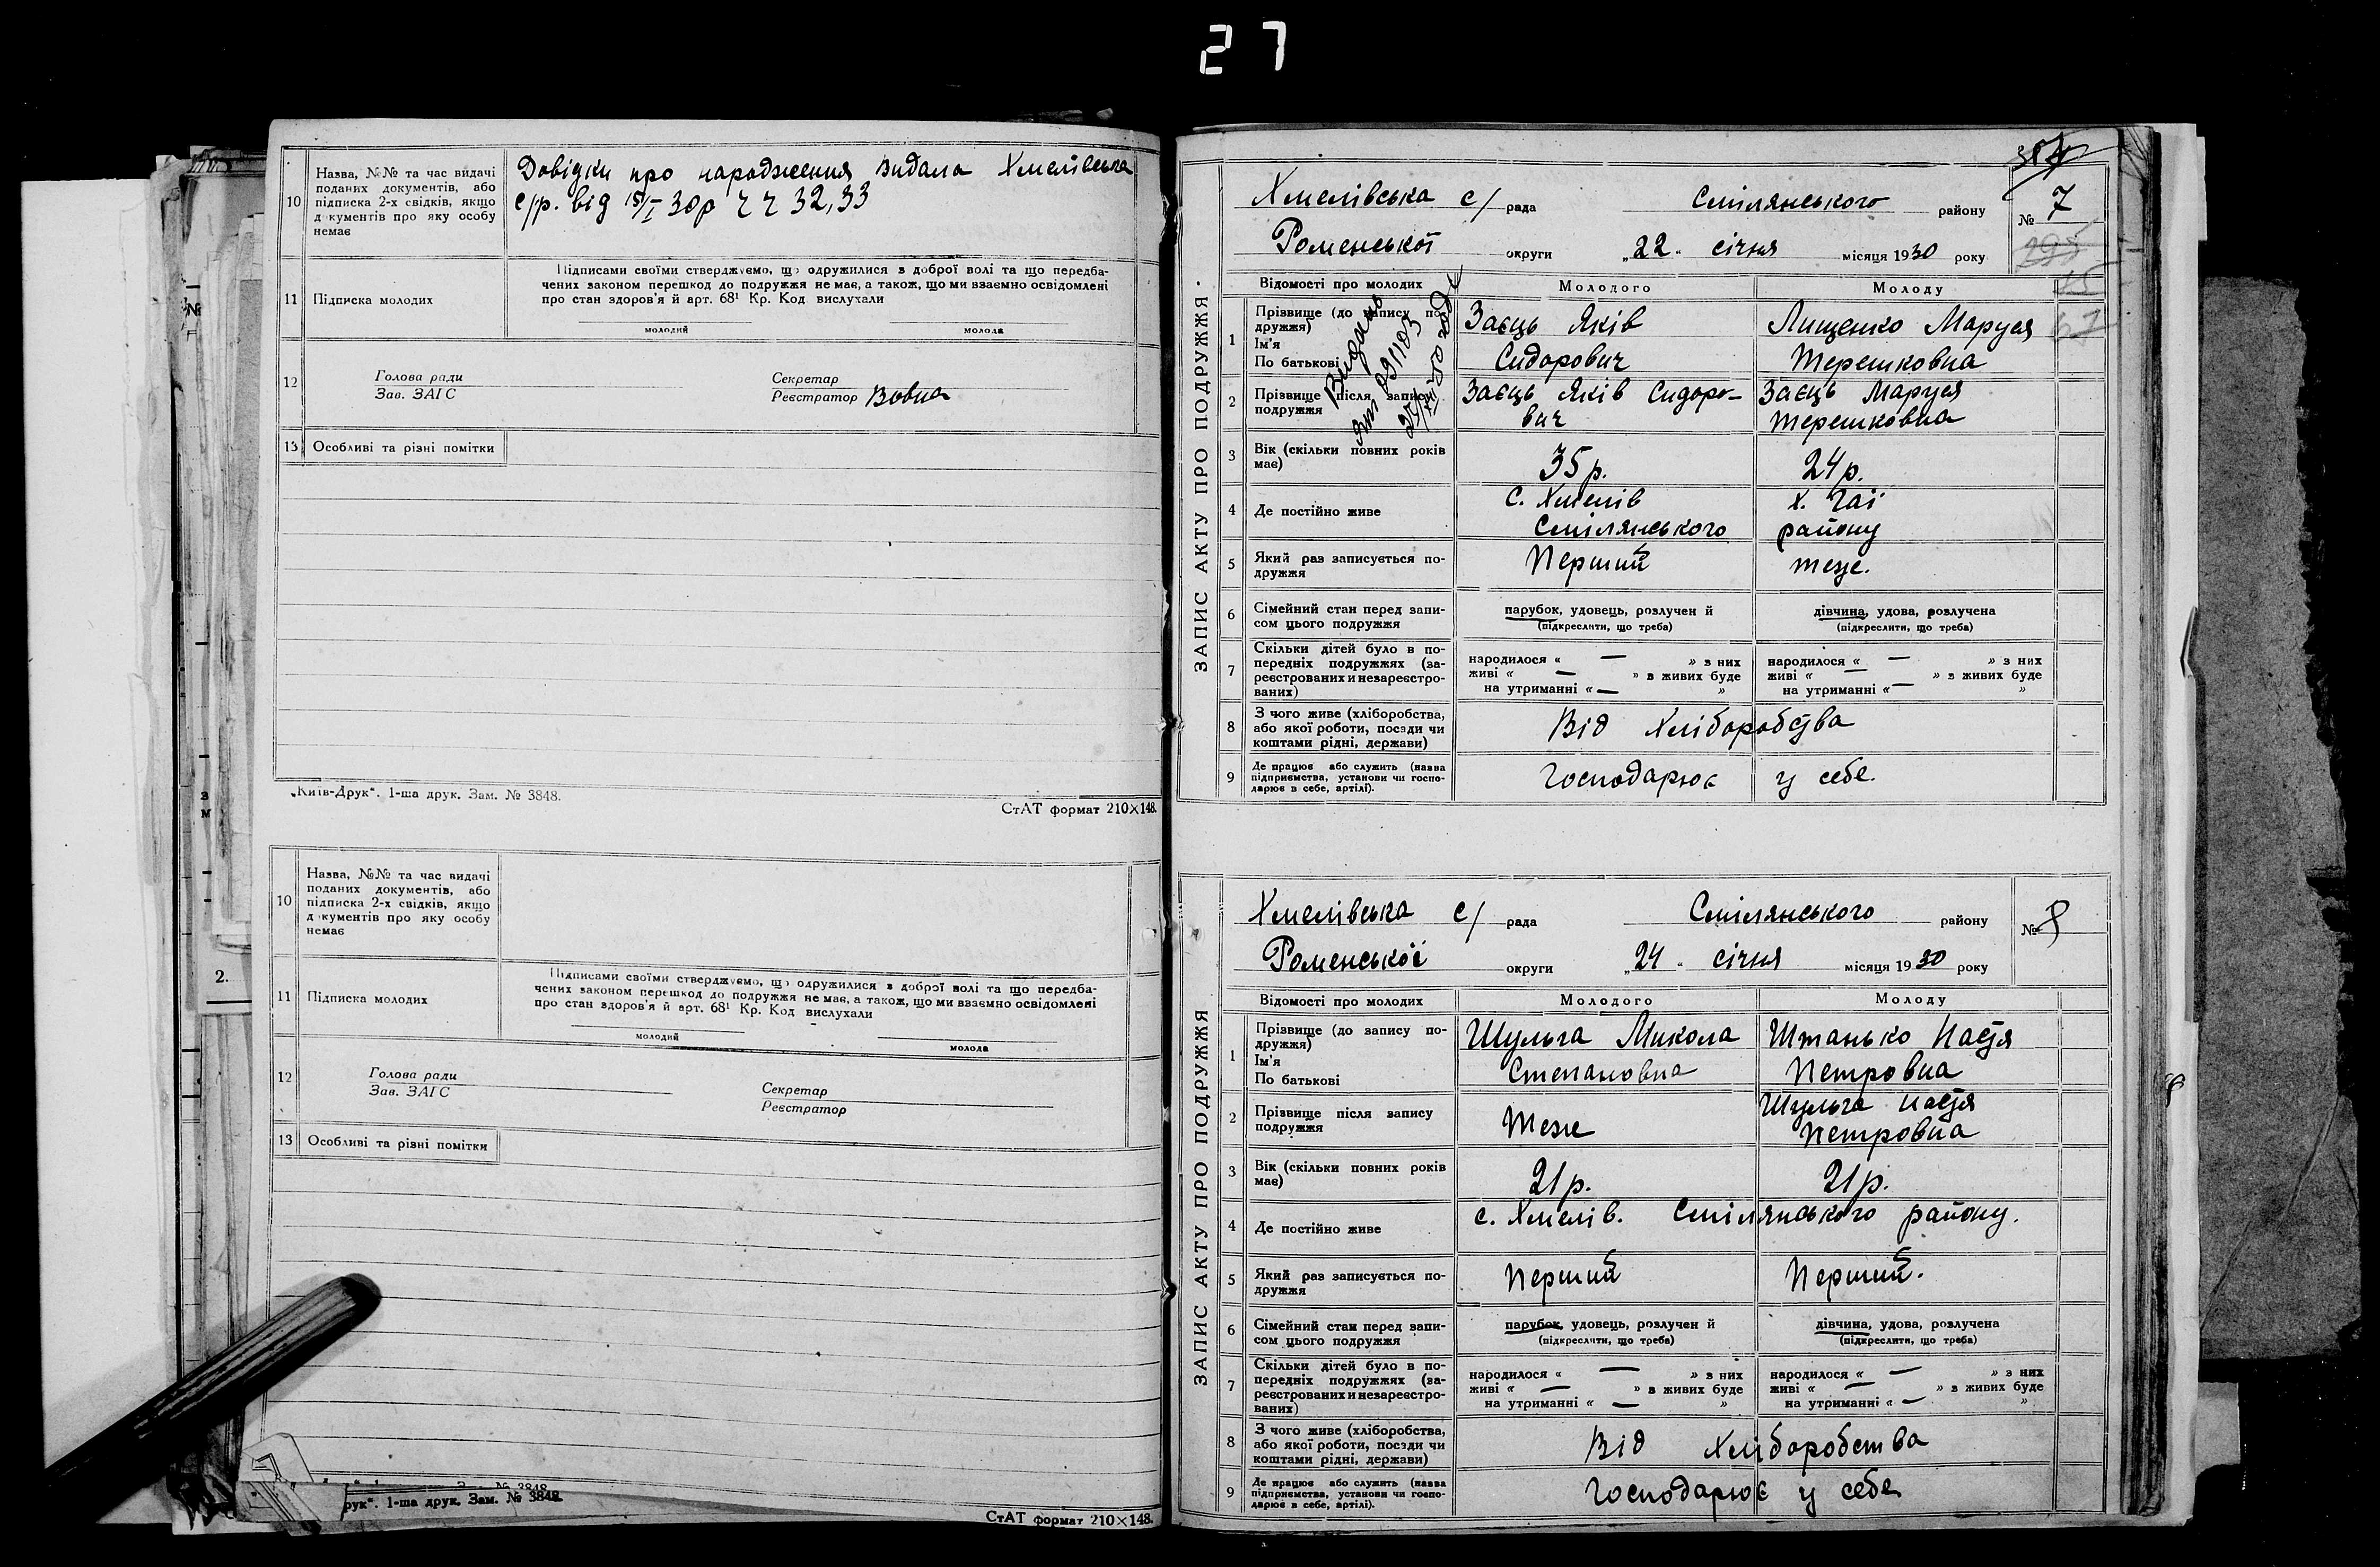 27
10
Назва, №№ та час видачі
поданих документів, або
підписка 2-х свідків, якщо
д кументів про яку особу
немає
Довідки про народження видала Хмелівська
с/р. від 15/I 30р ч ч 32, 33
11
Підписка молодих
Підписами своїми стверджуємо, що одружилися з доброї волі та що передба-
чених законом перешкод до подружжя не має, а також, що ми взаємно освідомлені
про стан здоров'я й арт. 68¹ Кр. Код вислухали
молодий
молода
12
Голова ради
Зав. ЗАГС
Секретар
Реєстратор Вовна
13
Особливі та різні помітки
„Київ-Друк“. 1-ша друк. Зам. № 3848.
СтАТ формат 210×148.
10
Назва, №№ та час видачі
поданих документів, або
підписка 2-х свідків, якщо
д кументів про яку особу
немає
11
Підписка молодих
Підписами своїми стверджуємо, що одружилися з доброї волі та що передба-
чених законом перешкод до подружжя не має, а також, що ми взаємно освідомлені
про стан здоров'я й арт. 68¹ Кр. Код вислухали
молодий
молода
12
Голова ради
Зав. ЗАГС
Секретар
Реєстратор
13
Особливі та різні помітки
рук“. 1-ша друк. Зам. № 3848
СтАТ формат 210×148.
2.
ЗАПИС АКТУ ПРО ПОДРУЖЖЯ
Хмелівська с/ рада Смілянського району
№ 7
Роменської округи „22“ січня місяця 1930 року
Відомості про молодих
Молодого
Молоду
1
Прізвище (до запису по-
дружжя)
Ім'я
По батькові
Заєць Яків
Сидорович
Лищенко Маруся
Терешковна
2
Прізвище після запису
подружжя
Заєць Яків Сидоро-
вич
Заєць Маруся
Терешковна
3
Вік (скільки повних років
має)
35 р.
24 р.
4
Де постійно живе
с. Хмелів
Смілянського
х. Гаі
району
5
Який раз записується по-
дружжя
Перший
теж.
6
Сімейний стан перед запи-
сом цього подружжя
парубок, удовець, розлучен й
(підкреслити, що треба)
дівчина, удова, розлучена
(підкреслити, що треба)
7
Скільки дітей було в по-
передніх подружжях (за-
реєстрованих и незареєстро-
ваних)
народилося « — » з них
живі « — » в живих буде
на утриманні « — »
народилося « — » з них
живі « — » в живих буде
на утриманні « — »
8
З чого живе (хліборобства,
або якої роботи, посади чи
коштами рідні, держави)
Від Хліборобства
9
Де працює або служить (назва
підприємства, установи чи госпо-
дарює в себе, артілі).
Господарює у себе.
ЗАПИС АКТУ ПРО ПОДРУЖЖЯ
Хмелівська с/ рада Смілянського району
№ 8
Роменської округи „24“ січня місяця 1930 року
Відомості про молодих
Молодого
Молоду
1
Прізвище (до запису по-
дружжя)
Ім'я
По батькові
Шульга Микола
Степановна
Штанько Настя
Петровна
2
Прізвище після запису
подружжя
Теж
Шульга Настя
Петровна
3
Вік (скільки повних років
має)
21 р.
21 р.
4
Де постійно живе
с. Хмелів. Смілянського району.
5
Який раз записується по-
дружжя
Перший
Перший.
6
Сімейний стан перед запи-
сом цього подружжя
парубок, удовець, розлучен й
(підкреслити, що треба)
дівчина, удова, розлучена
(підкреслити, що треба)
7
Скільки дітей було в по-
передніх подружжях (за-
реєстрованих и незареєстро-
ваних)
народилося « — » з них
живі « — » в живих буде
на утриманні « — »
народилося « — » з них
живі « — » в живих буде
на утриманні « — »
8
З чого живе (хліборобства,
або якої роботи, посади чи
коштами рідні, держави)
Від Хліборобства
9
Де працює або служить (назва
підприємства, установи чи госпо-
дарює в себе, артілі).
Господарює у себе